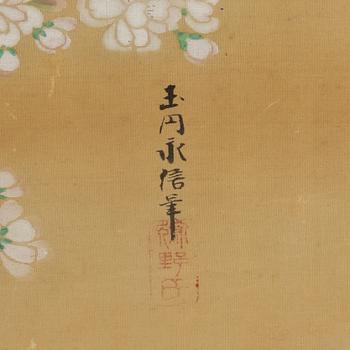 玉円永信筆
狩野氏